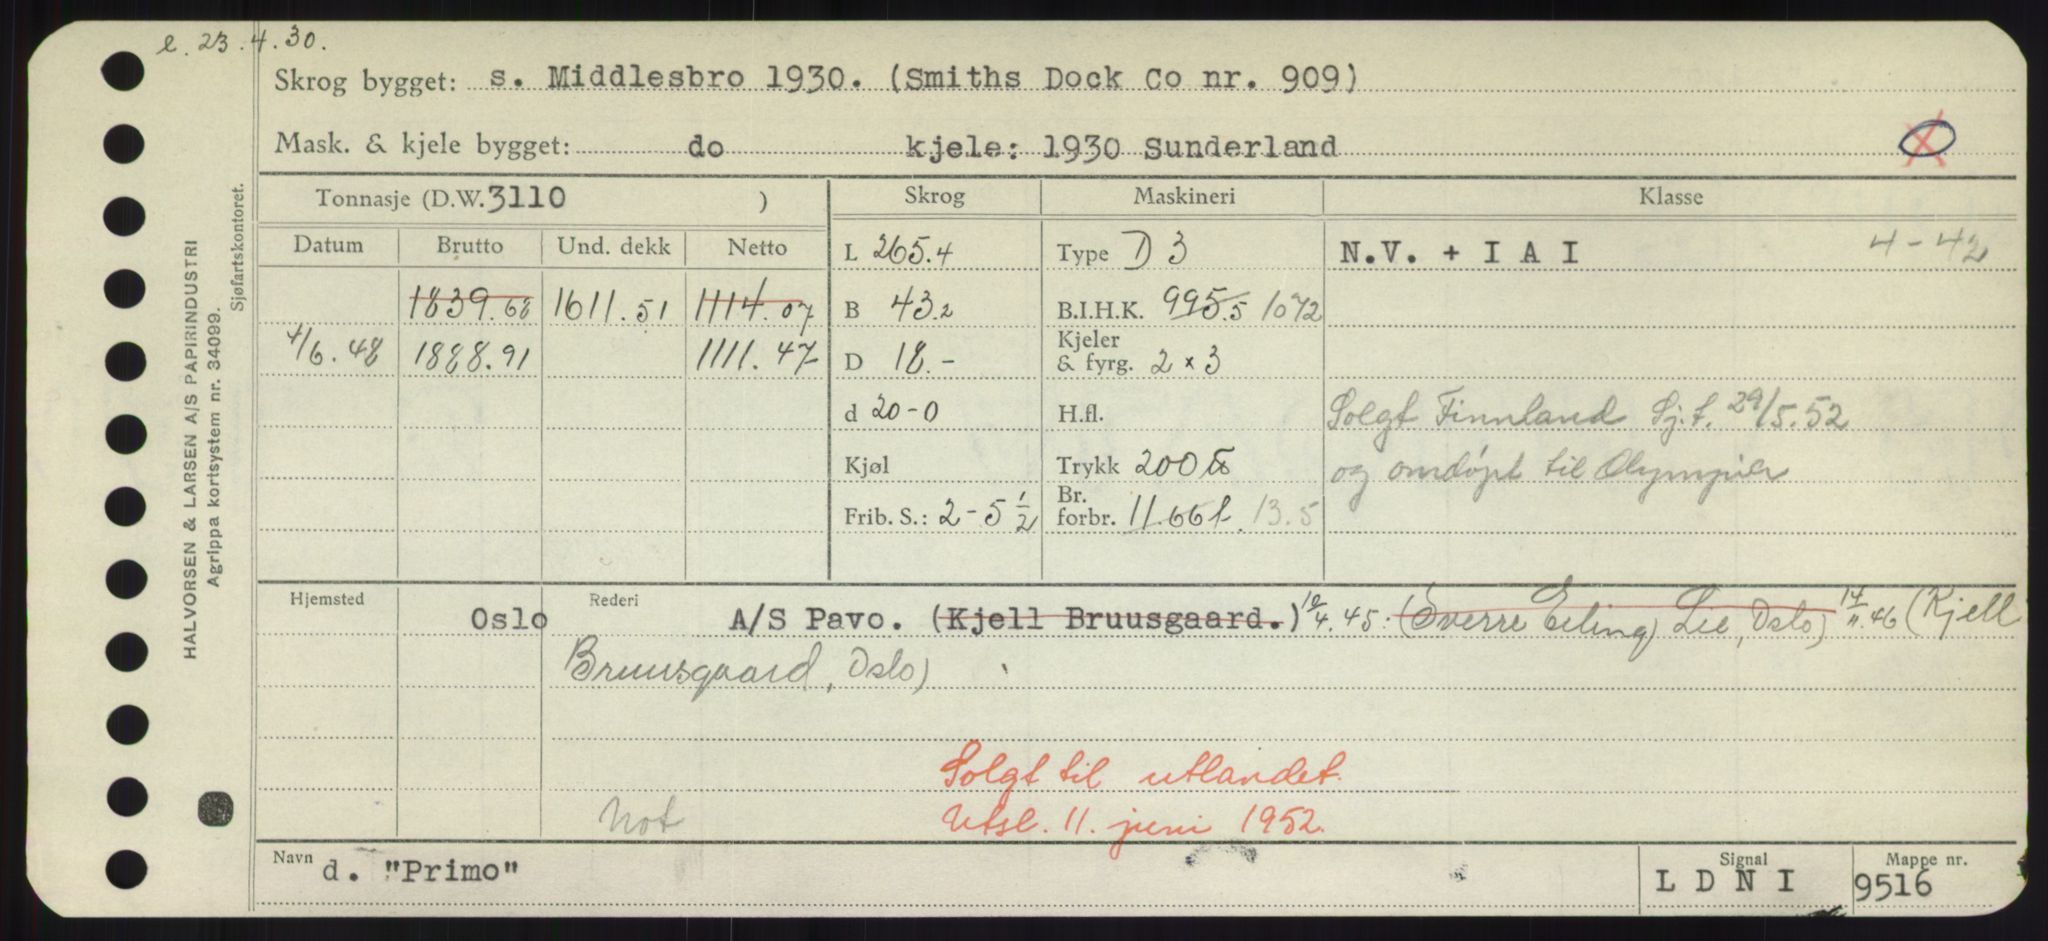 e. 23.4.30.
Skrog bygget: s. Middlesbro 1930. (Smiths Dock Co nr. 909)
Mask. & kjele bygget: do kjele: 1930 Sunderland
Tonnasje (D.W. 3110 ) Skrog Maskineri Klasse
Datum Brutto Und. dekk Netto L 265.4 Type D 3 N.V. + I A I 4-42
1839.68 1611.51 1114.07 B 43.2 B.I.H.K. 995.5 1072
4/6.48 1888.91 1111.47 D 18.- Kjeler & fyrg. 2 x 3
d 20-0 H.fl. Solgt Finnland Sj.t. 29/5.52
Kjøl Trykk 200 og omdöpt til
Frib. S.: 2-5 1/2 Br. forbr. 11.66 t. 13.5
Hjemsted Oslo Rederi A/S Pavo. (Kjell Bruusgaard.) 10/4.45. (Sverre Erling Lie, Oslo) 14/11.46 (Kjell
Bruusgaard, Oslo)
Solgt til utlandet.
Not Utsl. 11. juni 1952.
Navn d. "Primo" Signal L D N I Mappe nr. 9516
HALVORSEN & LARSEN A/S PAPIRINDUSTRI
Agrippa kortsystem nr. 34099.
Sjøfartskontoret.